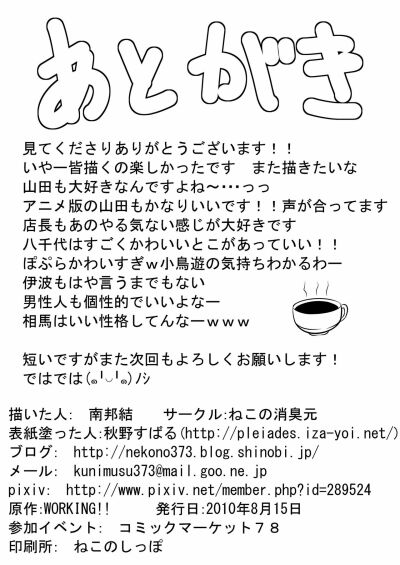 あとがき
見てくださりありがとうございます！！
いや一皆描くの楽しかったです　また描きたいな
山田も大好きなんですよね～・・・っっ
アニメ版の山田もかなりいいです！！声が合ってます
店長もあのやる気ない感じが大好きです
八千代はすごくかわいいとこがあっていい！！
ぽぷらかわいすぎｗ小鳥遊の気持ちわかるわー
伊波もはや言うまでもない
男性人も個性的でいいよなー
相馬はいい性格してんなーｗｗｗ
短いですがまた次回もよろしくお願いします！
ではでは(๑╹◡╹๑)ﾉｼ
描いた人:　南邦結　　サークル:ねこの消臭元
表紙塗った人:秋野すばる(http://pleiades.iza-yoi.net/)
ブログ:　http://nekono373.blog.shinobi.jp/
メール:　kunimusu373@mail.goo.ne.jp
pixiv:　http://www.pixiv.net/member.php?id=289524
原作:WORKING!!　　発行日:2010年8月15日
参加イベント:　コミックマーケット７８
印刷所:　ねこのしっぽ